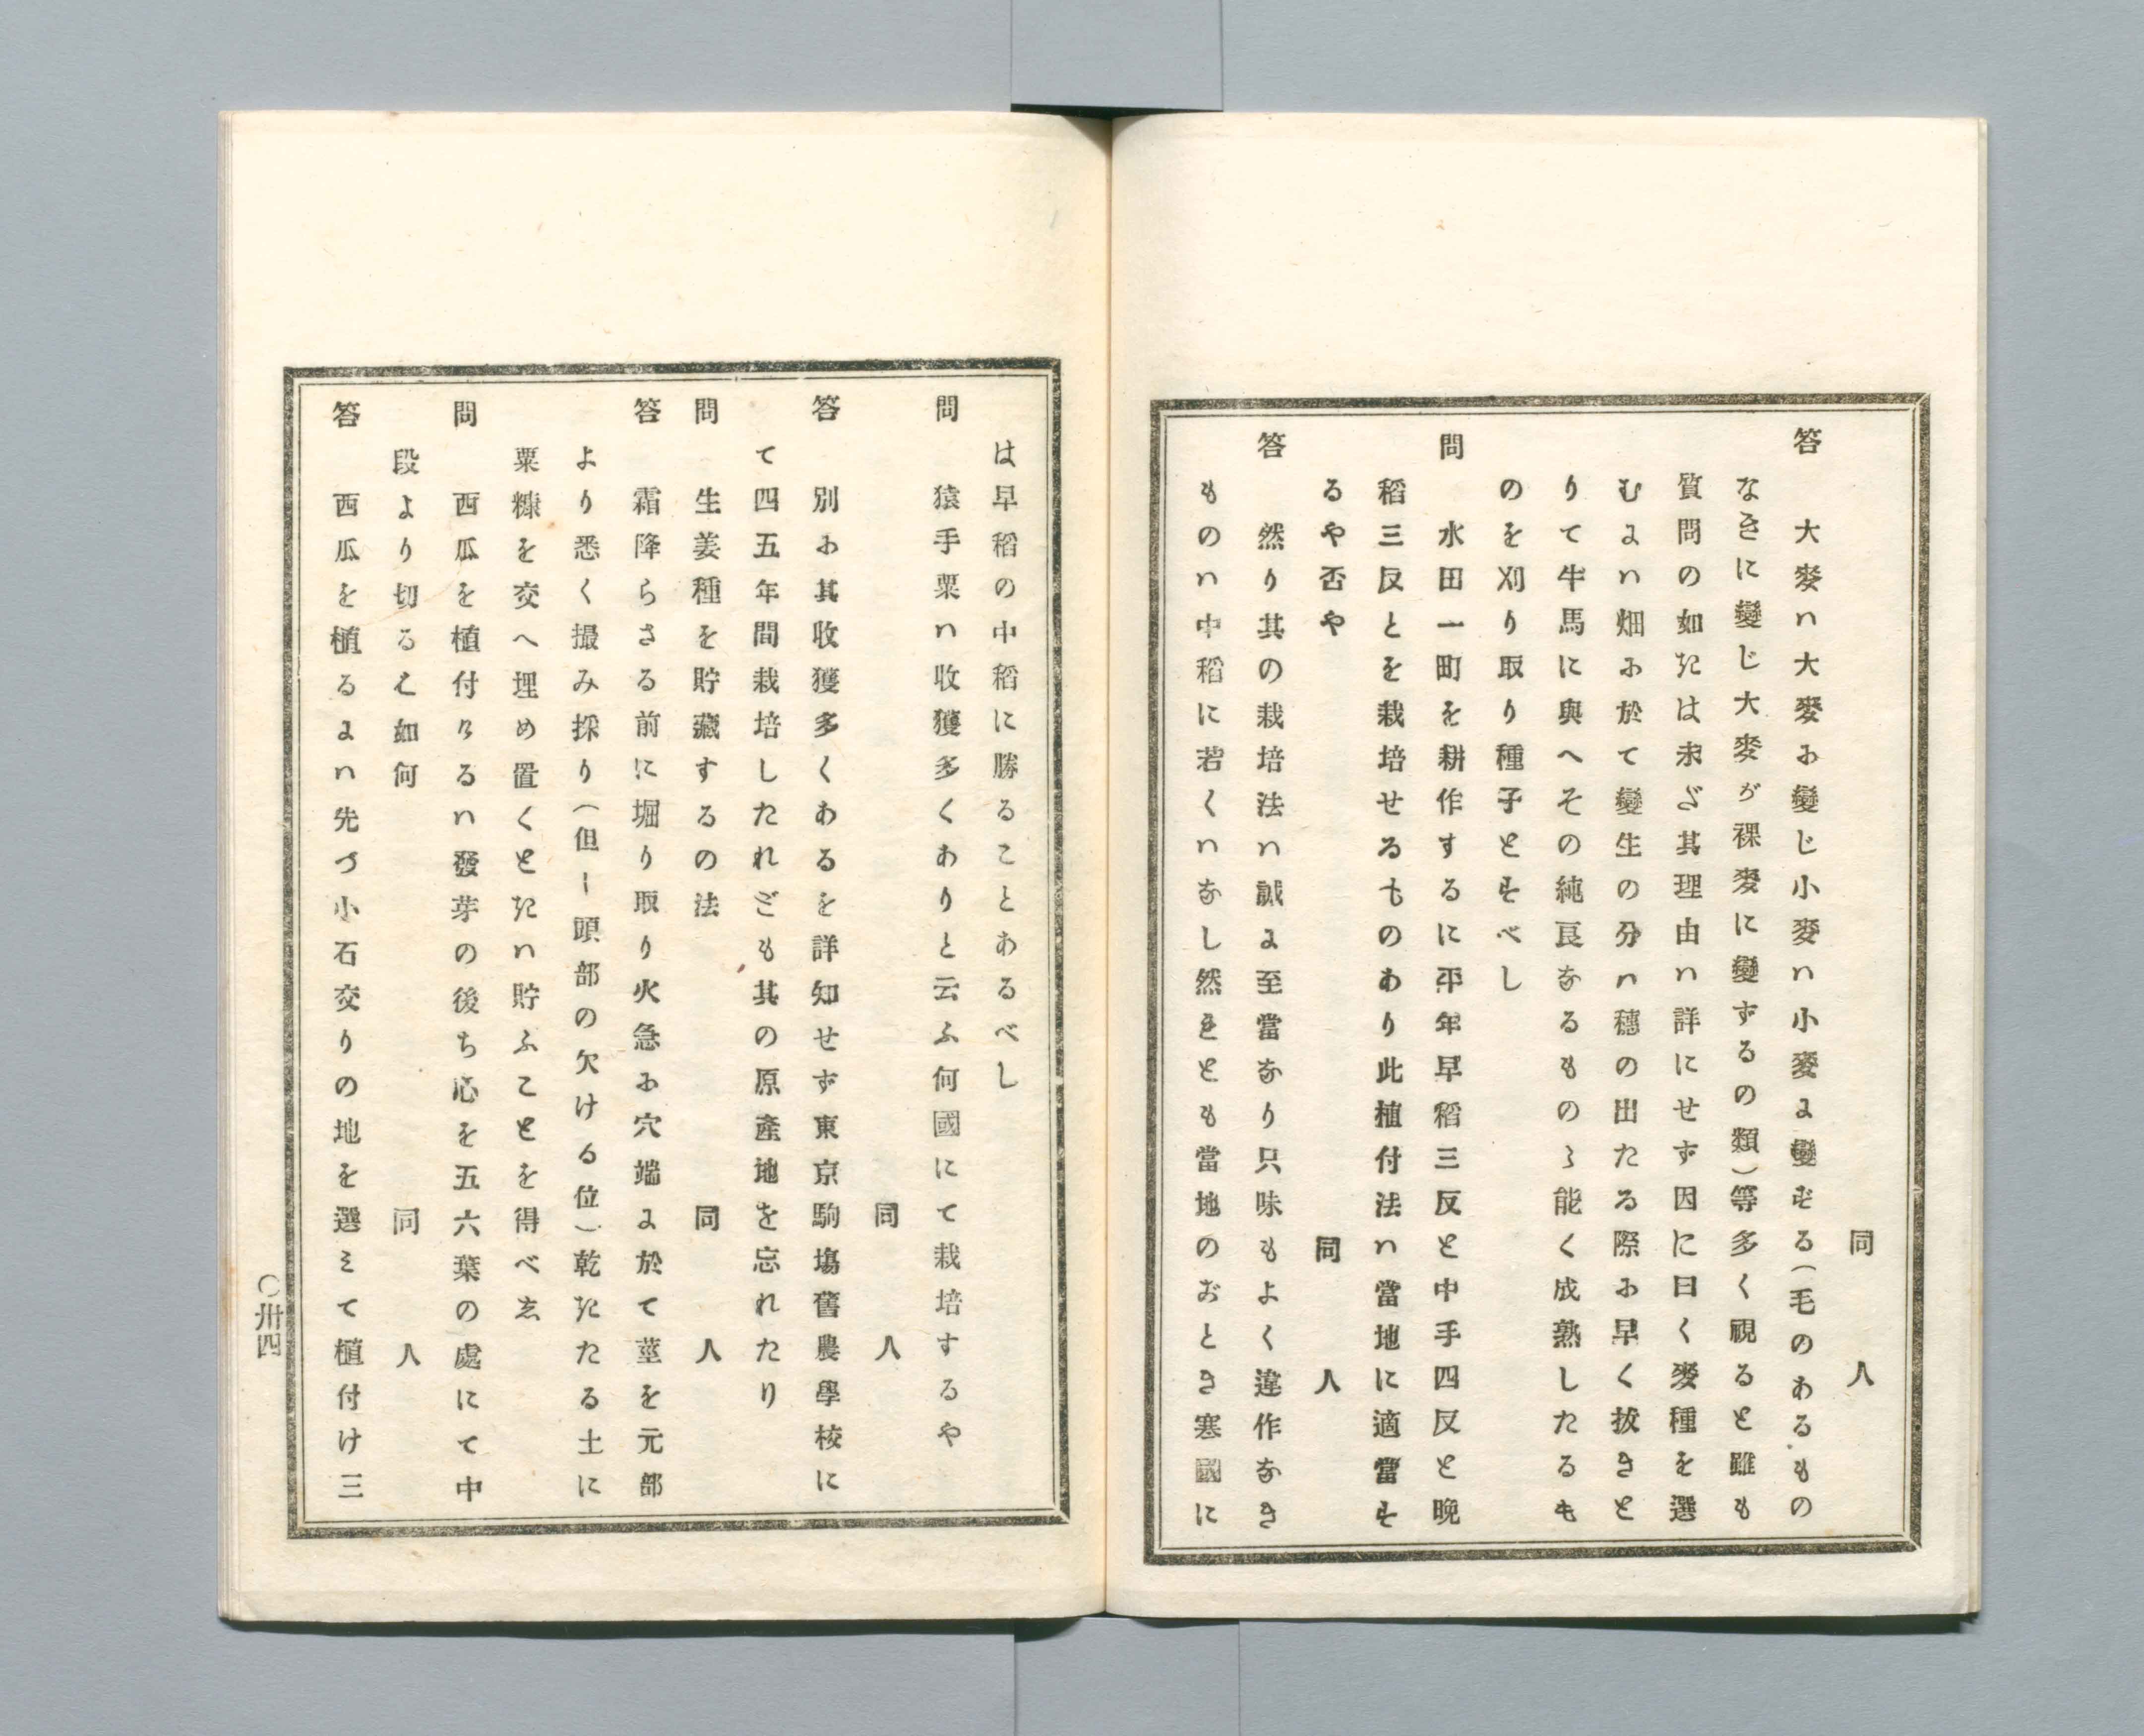 同人
答 大麥ハ大麥お變じ小麥ハ小麥よ變ぜる(毛のあるもの
なきに變じ大麥が裸麥に變ずるの類)等多く視ると雖も
質問の如たは未ざ其理由ハ詳にせず因に曰く麥種を選
むよハ畑お於て變生の分ハ穗の出たる際お早く拔きと
りて牛馬に與へその純良なるものゝ能く成熟したるも
のを刈り取り種子とすべし
問 水田一町を耕作するに平年早稻三反と中手四反と晩
稻三反とを栽培せるものあり此植付法ハ當地に適當す
るや否や 同人
答 然り其の栽培法ハ誠よ至當なり只味もよく違作なき
ものハ中稻に若くハなし然れとも當地のおとき寒國に
は早稻の中稻に勝ることあるべし
問 猿手粟ハ收獲多くありと云ふ何國にて栽培するや
同人
答 別お其收獲多くあるを詳知せず東京駒塲舊農學校に
て四五年間栽培したれども其の原產地を忘れたり
問 生姜種を貯藏するの法 同人
答 霜降らさる前に堀り取り火急お穴端よ於て莖を元部
より悉く撮み採り(但し頭部の欠ける位)乾たたる土に
粟糠を交へ埋め置くとたハ貯ふことを得べし
問 西瓜を植付くるハ發芽の後ち心を五六葉の處にて中
段より切るハ如何 同人
答 西瓜を植るよハ先づ小石交りの地を選みて植付け三
○卅四